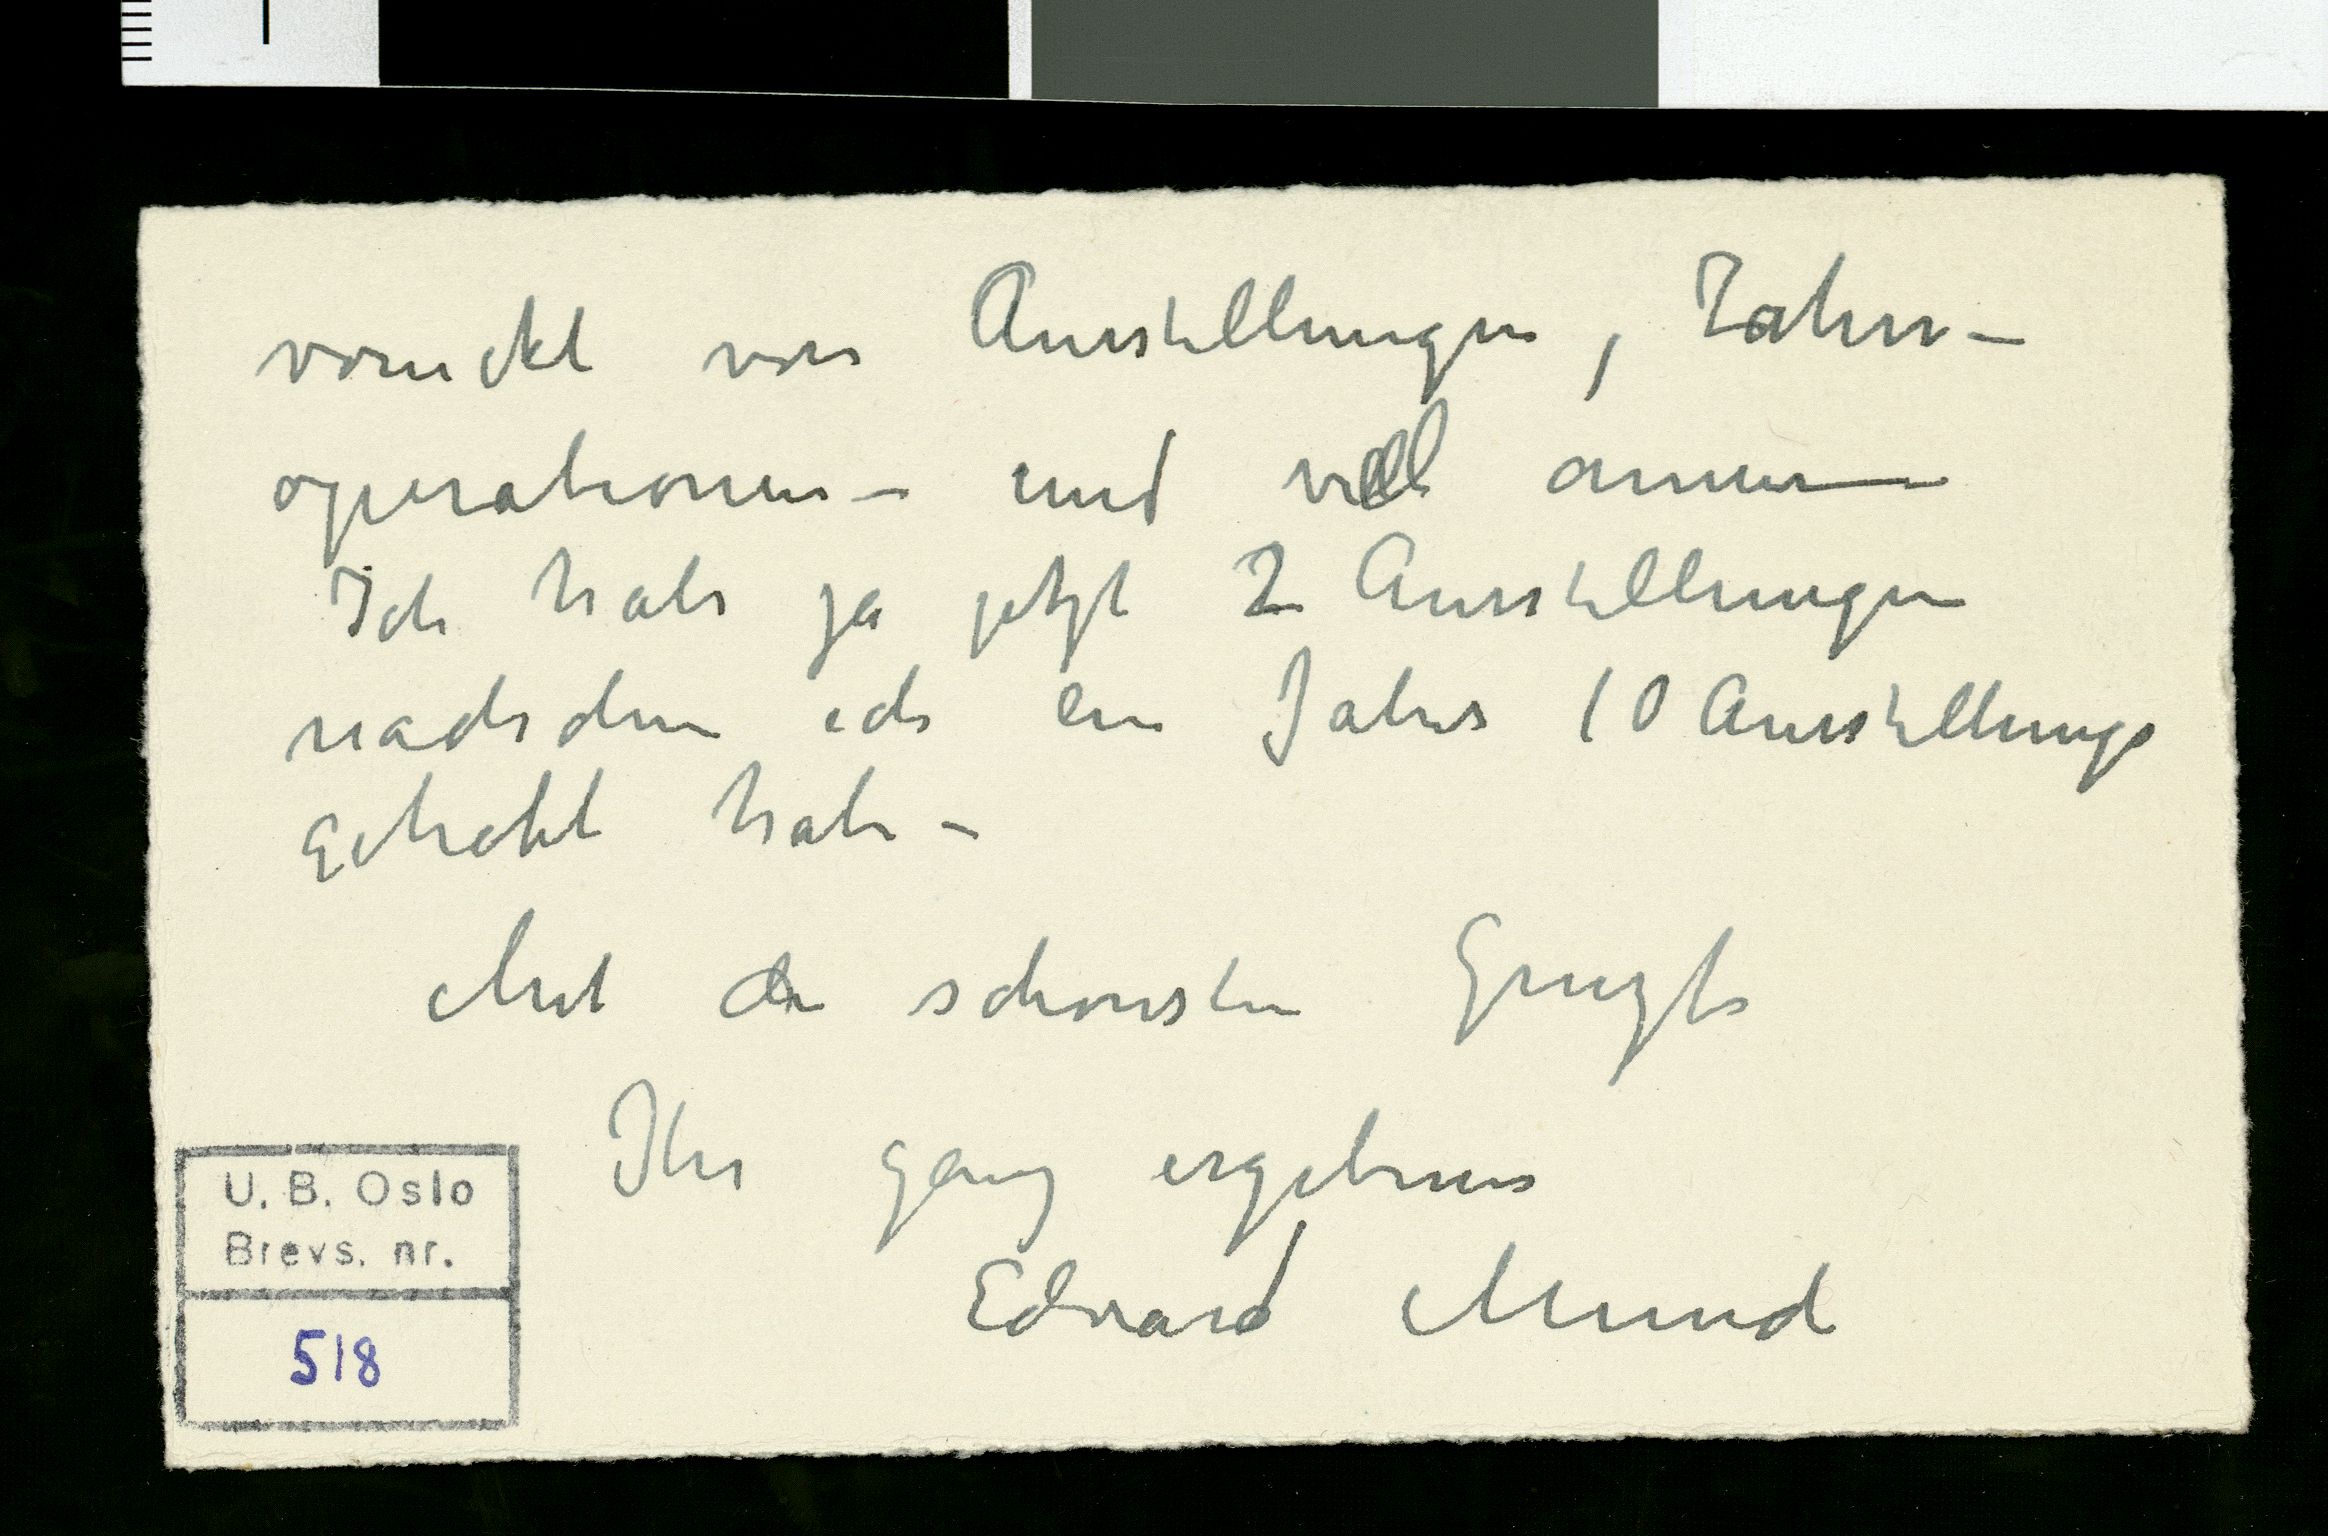 voruckt von Ausstellungen, Zahn-
operationen – und viel anneren
Ich habe ja jetzt 2 Ausstellungen
nachdem ich ein Jahr 10 Ausstellunge
gehabt habe –
Mit den schonsten Gruzße
Ihr ganz ergebenes
Edvard Munch
U. B. Oslo
Brevs. nr.
518